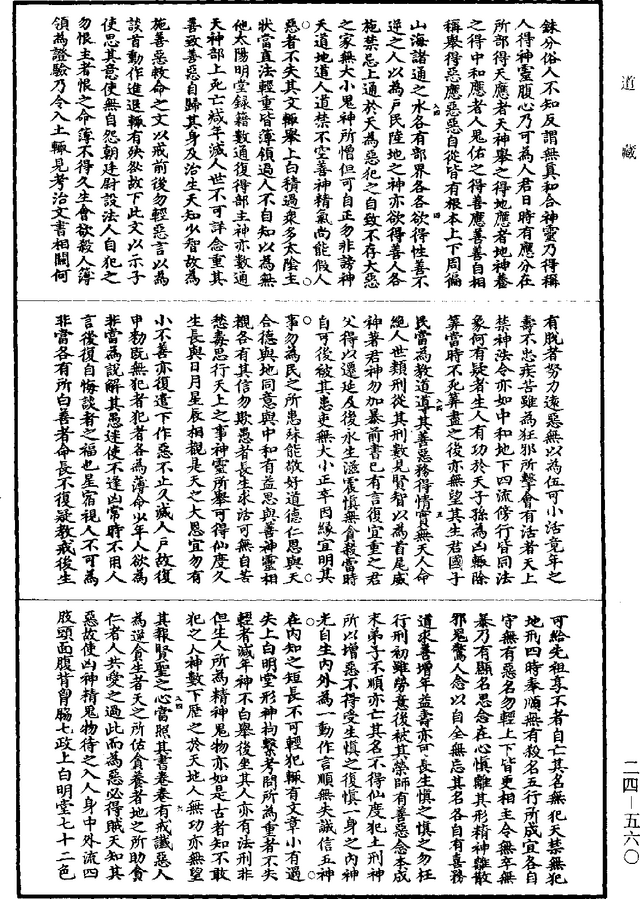 道藏
銖分俗人不知反謂無真和合神靈乃得稱
人得神靈腹心乃可為人君日時有應分在
所部得天應者天神舉之得地應者地神養
之得中和應者人鬼佑之得善應善善自相
稱舉得惡應惡惡自從皆有根本上下周徧
山海諸通之水各有部界各各欲得性善不
逆之人以為戶民陸地之神亦欲得善人各
施禁忌上通於天為惡犯之自致不存大惡
之家無大小鬼神所憎但可自正勿非謗神
天道地道人道禁不空善神精氣尚能假人
惡者不失其文輒舉上白積過衆多太陰主
狀當直法輕重皆簿領過人不自知以為無
他太陽明堂録籍數通復得部主神亦數通
天神部上死亡減年滅人世不可詳念重其
善致善惡自歸其身及治生天知少智故為
施善惡教命之文以戒前後勿輕惡言以為
談首動作進退輒有殃欲故下此文以示子
使思其意使無自怨朝廷尉設法人自犯之
勿恨主者恨之命簿不得久生會欲殺人簿
領為證驗乃令入土輒見考治文書相關何
有脫者努力遠惡無以為伍可小活竟年之
壽不忠疾苦雖為狂邪所擊會有活者天上
禁神法令亦如中和地下四流傍行皆同法
象何有疑者生人有功於天子孫為凶輒除
筭當時不死筭盡之後亦無望其生君國子
民當為教道導其善惡務得情實無夭人命
絕人世類刑從其刑數見賢智以為首尾威
神著君神勿加暴前書已有言復宜重之君
父得以遷延及後永生滋震慎無貪殺當時
自可後被其患吏無大小正卒因緣宜明其
事勿為民之所患緣能敬好道德仁思與天
合德與地同意與中和有益思與善神靈相
觀各有其信勿欺愚者長生求活可無自苦
愁毒思行天上之事神靈所舉可得仙度久
生長與日月星辰相觀是天之大恩宜勿有
小不善亦復還下作惡不止久滅人戶故復
申勑既無犯者犯者各為薄命少年人欲為
非當為說解其愚迷使不逢凶常時不用人
言後復自悔談者之福也星宿視人不可為
非當各有所白善者命長不復疑教戒後生
可給先祖享不者自亡其名無犯天禁無犯
地刑四時奉順無有殺名五行所成宜各自
守無有惡名勿輕上下皆更相主令無卒無
暴乃有顯名思念在心慎離其形精神離散
邪鬼驚人念以自全無忘其名各自有喜務
道求善增年益壽亦可長生慎之慎之勿枉
行刑初雖勞意後被其榮師有善惡念本成
末弟子不順亦亡其名不得仙度犯土刑神
所以增惡不得受生慎之復慎一身之內神
光自生內外為一動作言順無失誠信五神
在內知之短長不可輕犯輒有文章小有過
失上白明堂形神拘繫考問所為重者不失
輕者減年神不白舉後坐其人亦有法刑非
但生人所為精神鬼物亦如是古者知不敢
犯之人神數下歷之於天地人無功亦無望
其報賢聖之心當照其書卷卷有戒識惡人
為逆會生者天之所佑貪養者地之所助貪
仁者人共愛之過此而為惡必得賊天知其
惡故使凶神精鬼物待之入人身中外流四
肢頭面腹背胷脇七政上白明堂七十二色
二四—五六〇